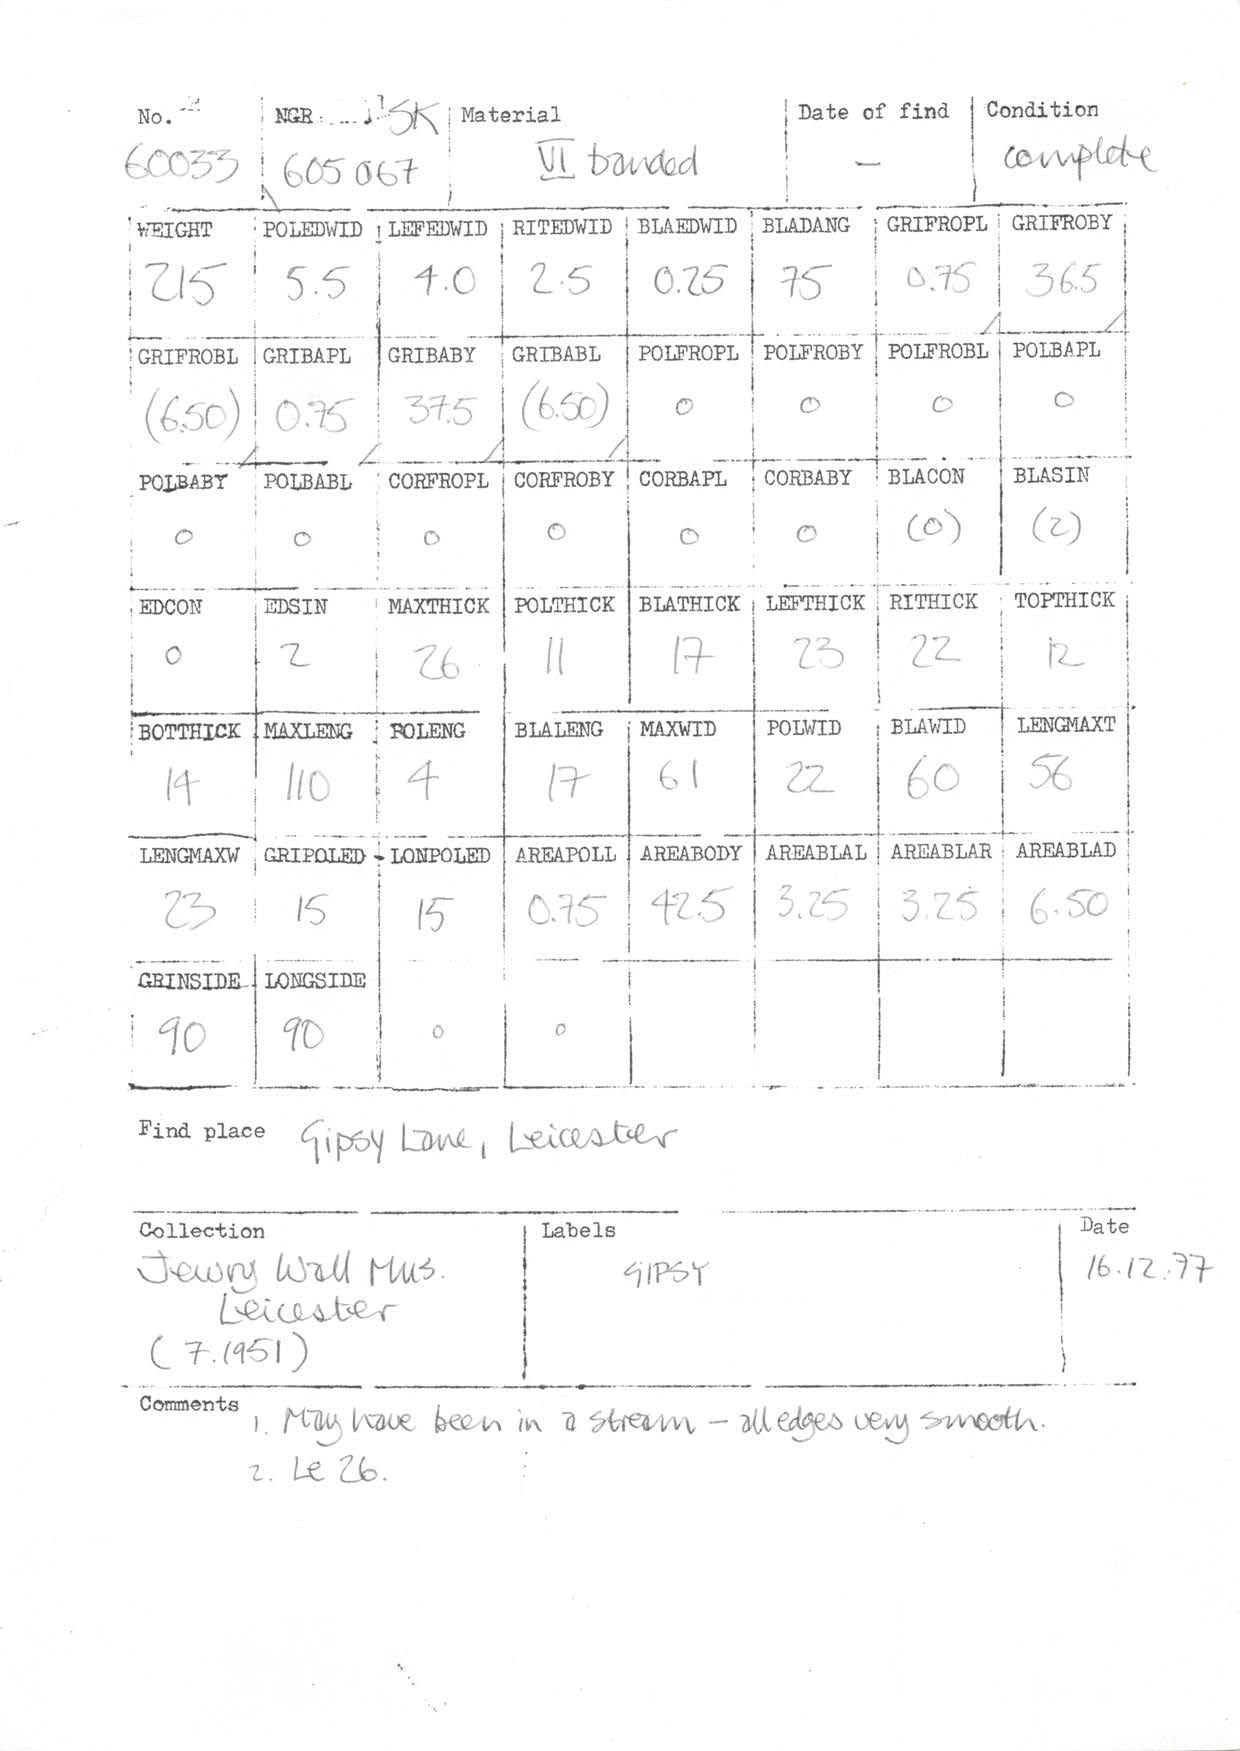 No. NGR SK Material Date of find Condition
60033 605 067 VI banded – complete
WEIGHT POLEDWID LEFEDWID RITEDWID BLAEDWID BLADANG GRIFROPL GRIFROBY
215 5.5 4.0 2.5 0.25 75 0.75 36.5
GRIFROBL GRIBAPL GRIBABY GRIBABL POLFROPL POLFROBY POLFROBL POLBAPL
(6.50) 0.75 37.5 (6.50) 0 0 0 0
POLBABY POLBABL CORFROPL CORFROBY CORBAPL CORBABY BLACON BLASIN
0 0 0 0 0 0 (0) (2)
EDCON EDSIN MAXTHICK POLTHICK BLATHICK LEFTHICK RITHICK TOPTHICK
0 2 26 11 17 23 22 12
BOTTHICK MAXLENG POLENG BLALENG MAXWID POLWID BLAWID LENGMAXT
14 110 4 17 61 22 60 56
LENGMAXW GRIPOLED LONPOLED AREAPOLL AREABODY AREABLAL AREABLAR AREABLAD
23 15 15 0.75 42.5 3.25 3.25 6.50
GRINSIDE LONGSIDE
90 90 0 0
Find place Gipsy Lane, Leicester
Collection Labels Date
Jewry Wall Mus. GIPSY 16.12.77
Leicester
(7.1951)
Comments 1. May have been in a stream – all edges very smooth.
2. Le 26.